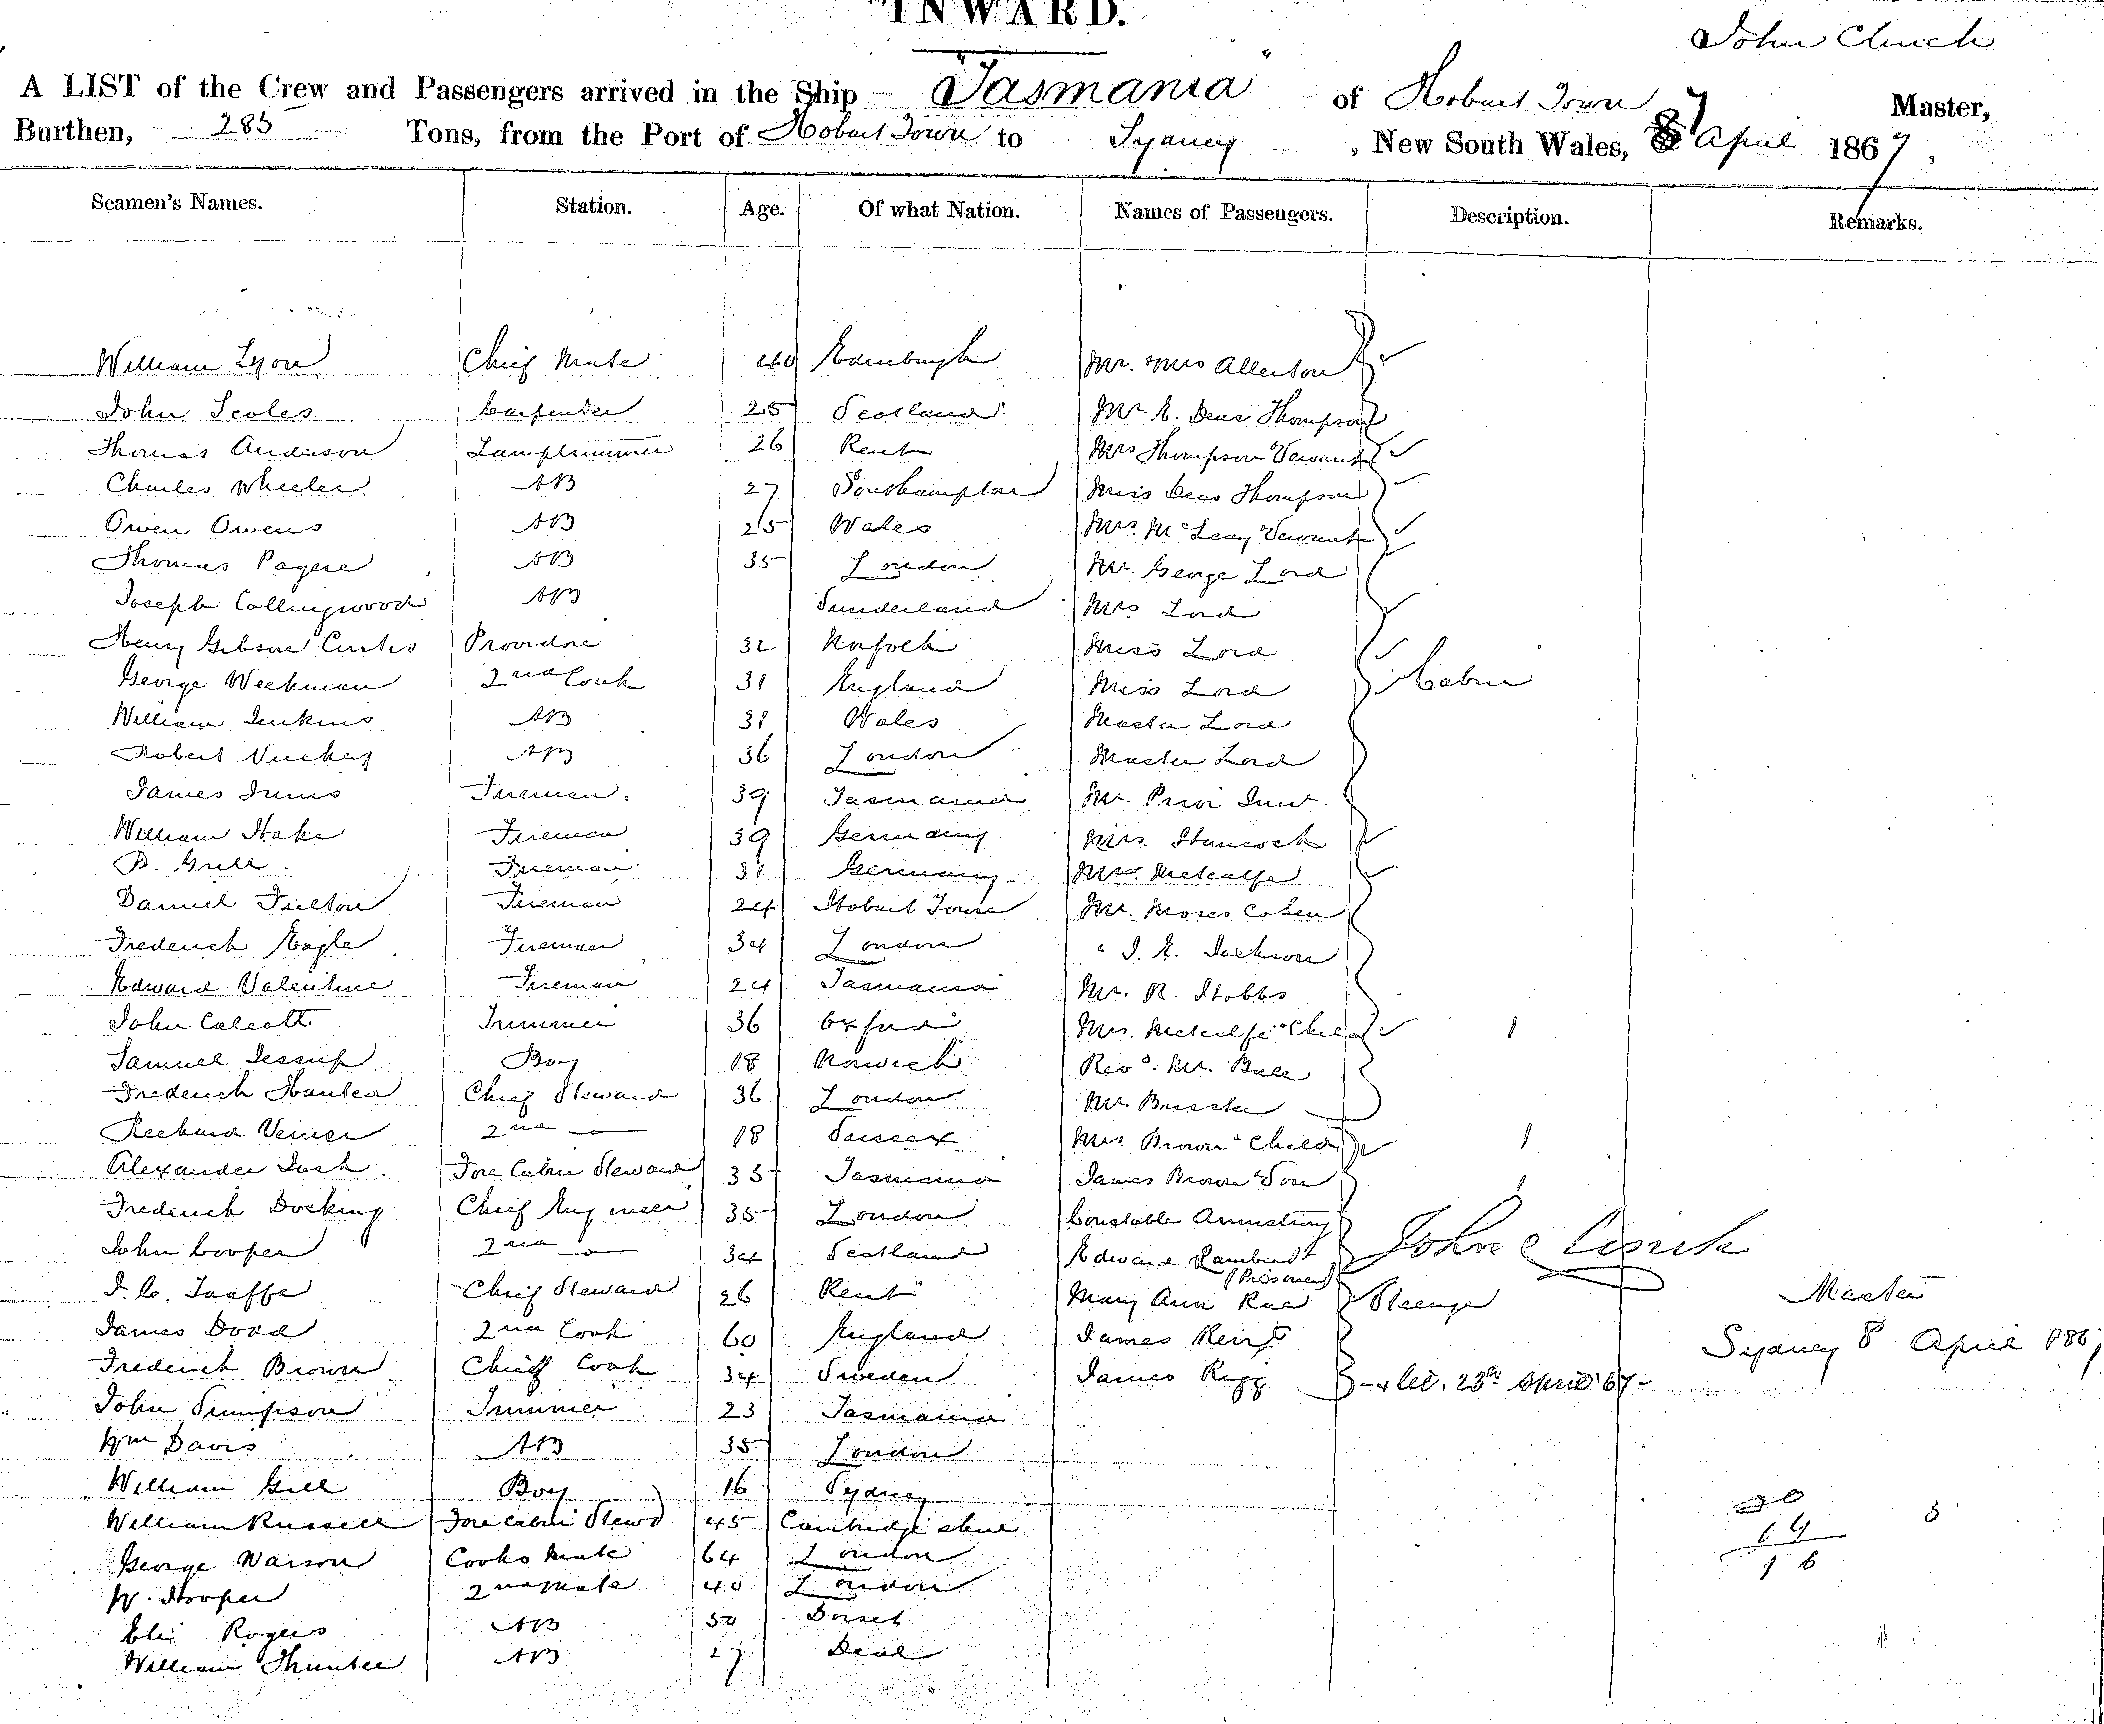 "INWARD.
John Clinch
A LIST of the Crew and Passengers arrived in the Ship Tasmania of Hobart Town Master,
Burthen, 285 Tons, from the Port of Hobart Town to Sydney, New South Wales, 8 April 1867.
Seamen's Names. Station. Age. Of what Nation. Names of Passengers. Description. Remarks.
William Lyon Chief Mate 40 Edinburgh Mr. Mrs Allerton
John Scoles Carpenter 25 Scotland Mr E. Deas Thompson
Thomas Anderson Lamptrimmer 26 Kent Mrs Thompson Servant
Charles Wheeler AB 27 Southampton Miss Deas Thompson
Owen Owens AB 25 Wales Mrs. McLeay Servant
Thomas Payne AB 35 London Mr. George Lord
Joseph Collingwood AB Sunderland Mrs Lord
Henry Gibson Curtis Providore 32 Norfolk Miss Lord
George Weekman 2nd Cook 31 England Miss Lord Cabin
William Jenkins AB 31 Wales Master Lord
Robert AB 36 London Master Lord
James Innis Fireman. 39 Tasmania Mr. Prior
William Hake Fireman 39 Germany Mrs. Hancock
B. Grill Fireman 31 Germany Mrs. Metcalfe
Daniel Fulton Fireman 24 Hobart Town Mr. Moses Cohen
Frederick Eagle Fireman 34 London " J. E. Jackson
Edward Valentine Fireman 24 Tasmania Mr. R. Stobbs
John Calcott Trimmer 36 Oxford Mrs. Metcalfe Child 1
Samuel Jessup Boy 18 Norwich Revd. Mr. Ball
Frederick Hunter Chief Steward 36 London Mr.
Richard Verner 2nd — 18 Sussex Mrs Brown Child 1
Alexander Fore Cabin Steward 35 Tasmania James Brown Son 1
Frederick Docking Chief Engineer 35 London Constable Armstrong John Clinch
John Cooper 2nd — 34 Scotland Edward Lambert
(Prisoner)
J. C. Taaffe Chief Steward 26 Kent Mary Ann Rae Steerage Master
James Dodd 2nd Cook 60 England James Sydney 8 April 1867
Frederick Brown Chief Cook 34 Sweden James Rigg 23rd April 67
John Simpson Trimmer 23 Tasmania
Wm Davis AB 35 London
William Gill Boy 16 Sydney
William Russell Fore Cabin Stewd 45 Cambridgeshire 3
George Warson Cooks Mate 64 London
W. Hooper 2nd Mate 40 London
Eli Rogers AB 50 Dorset
William Thunder AB 27 Deal